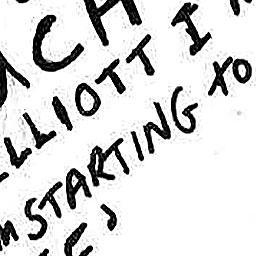 ACH
ELLIOTT I
M STARTING TO